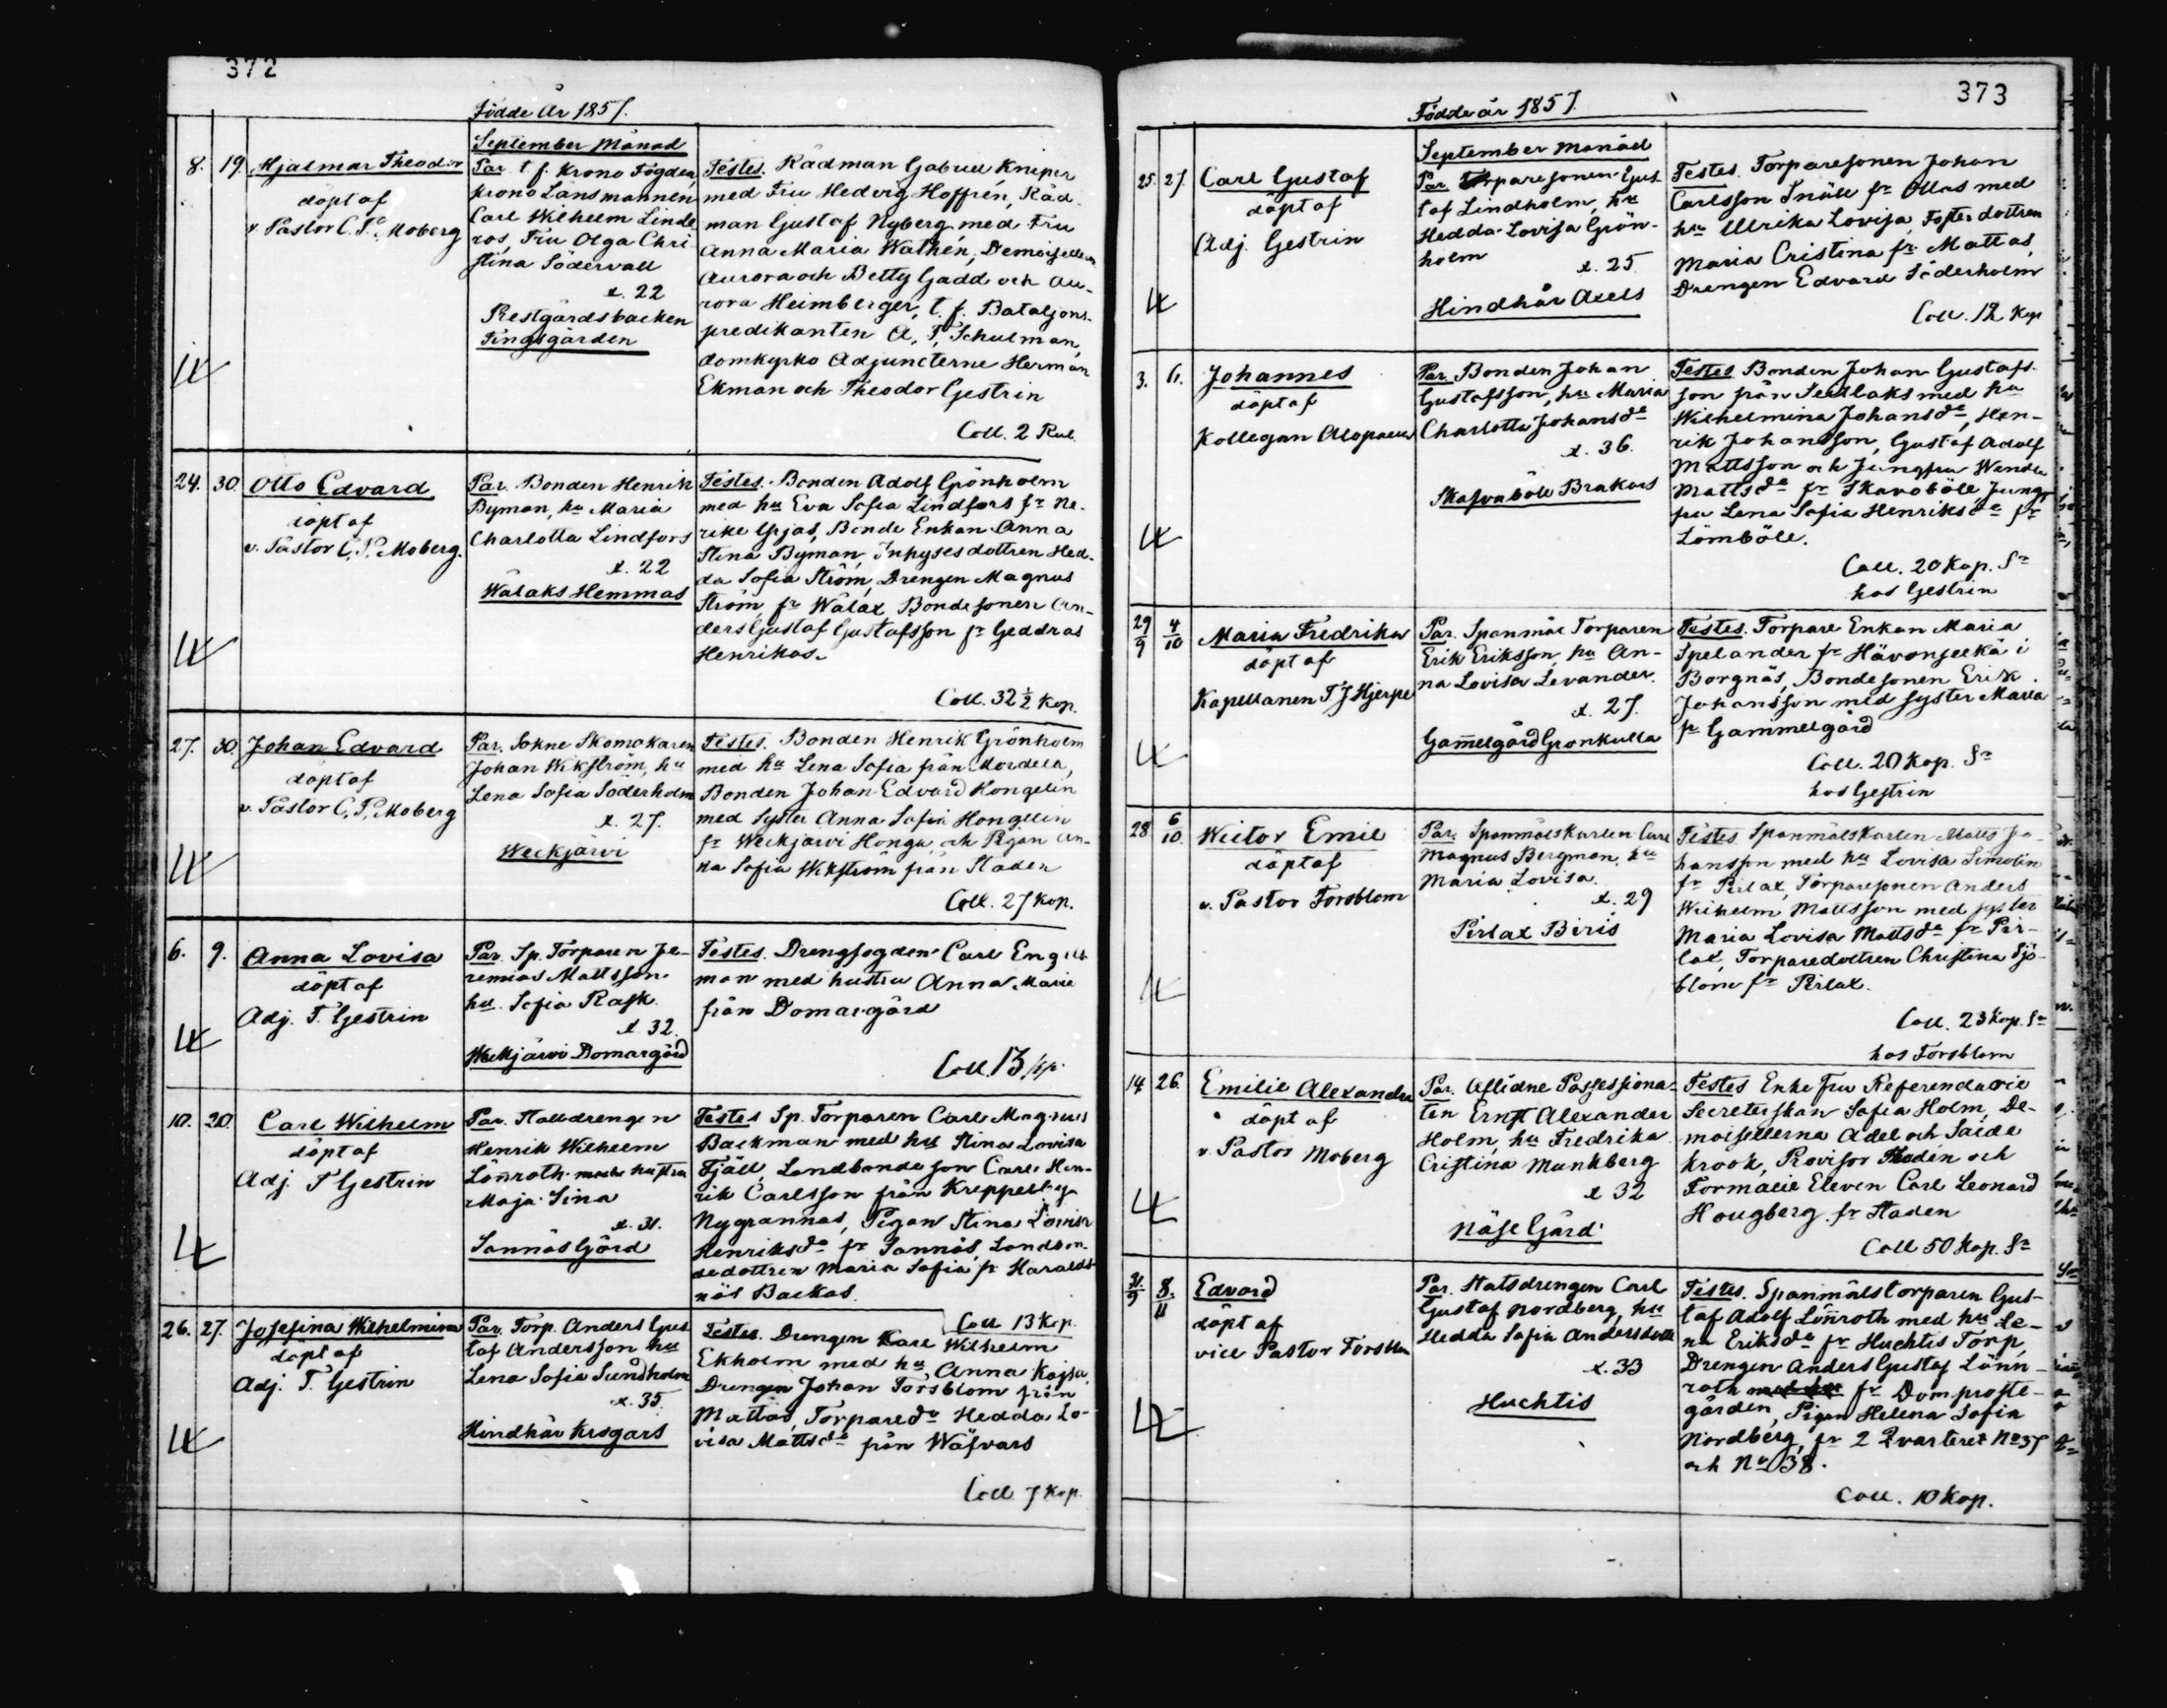 372
Födde År 1857.
September Månad
8. 19. Hjalmar Theodor
döpt af
v. Pastor C. P. Moberg
Par. t. f. Krono Fogden,
Krono Länsmannen
Carl Wilhelm Linde
ros, Fru Olga Chri
stina Södervall
æ. 22
Prestgårdsbacken
Tingsgården
Testes. Rådman Gabriel Kniper
med Fru Hedvig Hoffrén, Råd
man Gustaf Nyberg med Fru
Anna Maria Wathén, Demoisellerna
Aurora och Betty Gadd och Au-
rora Heimberger, t. f. Bataljons-
predikanten A. F. Schulman,
domkyrko Adjuncterne Herman
Ekman och Theodor Gestrin
Coll. 2 Rub.
24. 30. Otto Edvard
döpt af
v. Pastor C. P. Moberg.
Par. Bonden Henrik
Byman, hu Maria
Charlotta Lindfors
æ. 22
Wålaks Hemmas
Testes. Bonden Adolf Grönholm
med hu Eva Sofia Lindfors fr Ne-
rike Grjas, Bonde Enkan Anna
Stina Byman, Inhysesdottren Hed-
da Sofia Ström, Drengen Magnus
Ström, fr Wålax Bondesonen An-
ders Gustaf Gustafsson fr Geddras
Henrikas.
Coll. 32 ½ kop.
27. 30. Johan Edvard
döpt af
v. Pastor C. P. Moberg
Par. Sokne Skomakaren
Johan Wikström, hu
Lena Sofia Söderholm
æ. 27.
Weckjärvi
Testes. Bonden Henrik Grönholm
med hu Lena Sofia från Mordela,
Bonden Johan Edvard Hongelin
med Syster Anna Sofia Hongelin
fr Weckjärvi Honga, och Pigan An-
na Sofia Wikström från Staden
Coll. 27 kop.
6. 9. Anna Lovisa
döpt af
Adj. T. Gestrin
Par. Sp. Torparen Je-
remias Mattsson
hu. Sofia Rask
æ. 32.
Weckjärvi Domargård
Testes. Drengfogden Carl Engel
man med hustru Anna Maria
från Domargård
Coll. 13 kp.
10. 20. Carl Wilhelm
döpt af
Adj. T Gestrin
Par. Stalldrengen
Henrik Wilhelm
Lönroth hustru
Maja Sina
æ. 31.
Sannäs Gård
Testes Sp. Torparen Carl Magnus
Backman med hu Stina Lovisa
Fjäll, Landbonde son Carl Hen-
rik Carlsson från Kreppelby
Nygrannas, Pigan Stina Lovisa
Henriksda fr Sannäs, Landbon-
dedottren Maria Sofia fr Haralds
näs Backas.
Coll 13 Kop.
26. 27. Josefina Wilhelmina
döpt af
Adj. T. Gestrin
Par. Torp. Anders Gus
taf Andersson hu
Lena Sofia Sundholm
æ. 35.
Hindhår Krogars
Testes. Drengen Karl Wilhelm
Ekholm med hu Anna Kajsa,
Drengen Johan Forsblom från
Mattas, Torpareda Hedda Lo-
visa Mattsda från Wäfvars
Coll. 7 Kop.
373
Födde år 1857.
September Månad
25. 27. Carl Gustaf
döpt af
Adj. Gestrin
Par. Torparesonen Gus-
taf Lindholm, hu
Hedda Lovisa Grön-
holm
æ. 25.
Hindhår Axels
Testes. Torparesonen Johan
Carlsson Snäll fr Ollas med
hu Ulrika Lovisa, Fosterdottren
Maria Cristina fr Mattas,
Drengen Edvard Söderholm
Coll. 12 Kop
3. 6. Johannes
döpt af
Kollegan Alopaeus
Par. Bonden Johan
Gustafsson, hu Maria
Charlotta Johansda
æ. 36.
Skafvaböle Brakars
Testes Bonden Johan Gustafs-
son från Seitlaks med hu
Wilhelmina Johansda, Hen-
rik Johansson, Gustaf Adolf
Mattsson och Jungfru Wendla
Mattsda fr Skavaböle, Jung-
fru Lena Sofia Henriksda fr
Lömböle.
Coll. 20 Kop. Sr
hos Gestrin
29/9 4/10 Maria Fredrika
döpt af
Kapellanen T J Hjerpe
Par. Spanmåls Torparen
Erik Eriksson, hu An-
na Lovisa Levander.
æ. 27.
Gammelgård Gronkulla
Testes. Torpare Enkan Maria
Spelander fr Hävonselkä i
Borgnäs, Bondesonen Erik
Johansson med syster Maria
fr Gammelgård
Coll. 20 Kop. Sr
hos Gestrin
28 6/10. Wictor Emil
döpt af
v. Pastor Forsblom
Par. Spanmålskarlen Carl
Magnus Bergman, hu
Maria Lovisa.
æ. 29
Pirlax Biris
Testes Spanmålskarlen Matts Jo-
hansson med hu Lovisa Simolin
fr Pirlax, Torparesonen Anders
Wilhelm Mattsson med syster
Maria Lovisa Mattsda fr Pir-
lax, Torparedottren Christina Sjö-
blom fr Pirlax.
Coll. 23 Kop. Sr
hos Forsblom
14 26. Emilie Alexandra
döpt af
v Pastor Moberg
Par. Aflidne Possessiona-
ten Ernst Alexander
Holm, hu Fredrika
Cristina Munkberg
æ 32
Näse Gård.
Testes Enke Fru Referendarie
Secreterskan Sofia Holm, De-
moisellerna Adel och Saide
Krook, Provisor Thodén och
Formacie Eleven Carl Leonard
Hougberg fr Staden
Coll 50 Kop. Sr
8/11 Edvard
döpt af
vice Pastor Forsblom
Par. Statsdrengen Carl
Gustaf Nordberg, hu
Hedda Sofia Andersdotter
æ. 33
Huchtis
Testes. Spanmålstorparen Gus-
taf Adolf Lönroth med hu Le-
na Eriksda fr Huchtis Torp,
Drengen Anders Gustaf Lönn-
roth fr Domproste-
gården, Pigan Helena Sofia
Nordberg, fr 2 Qvarteret No 37
och No 38.
Coll. 10 Kop.